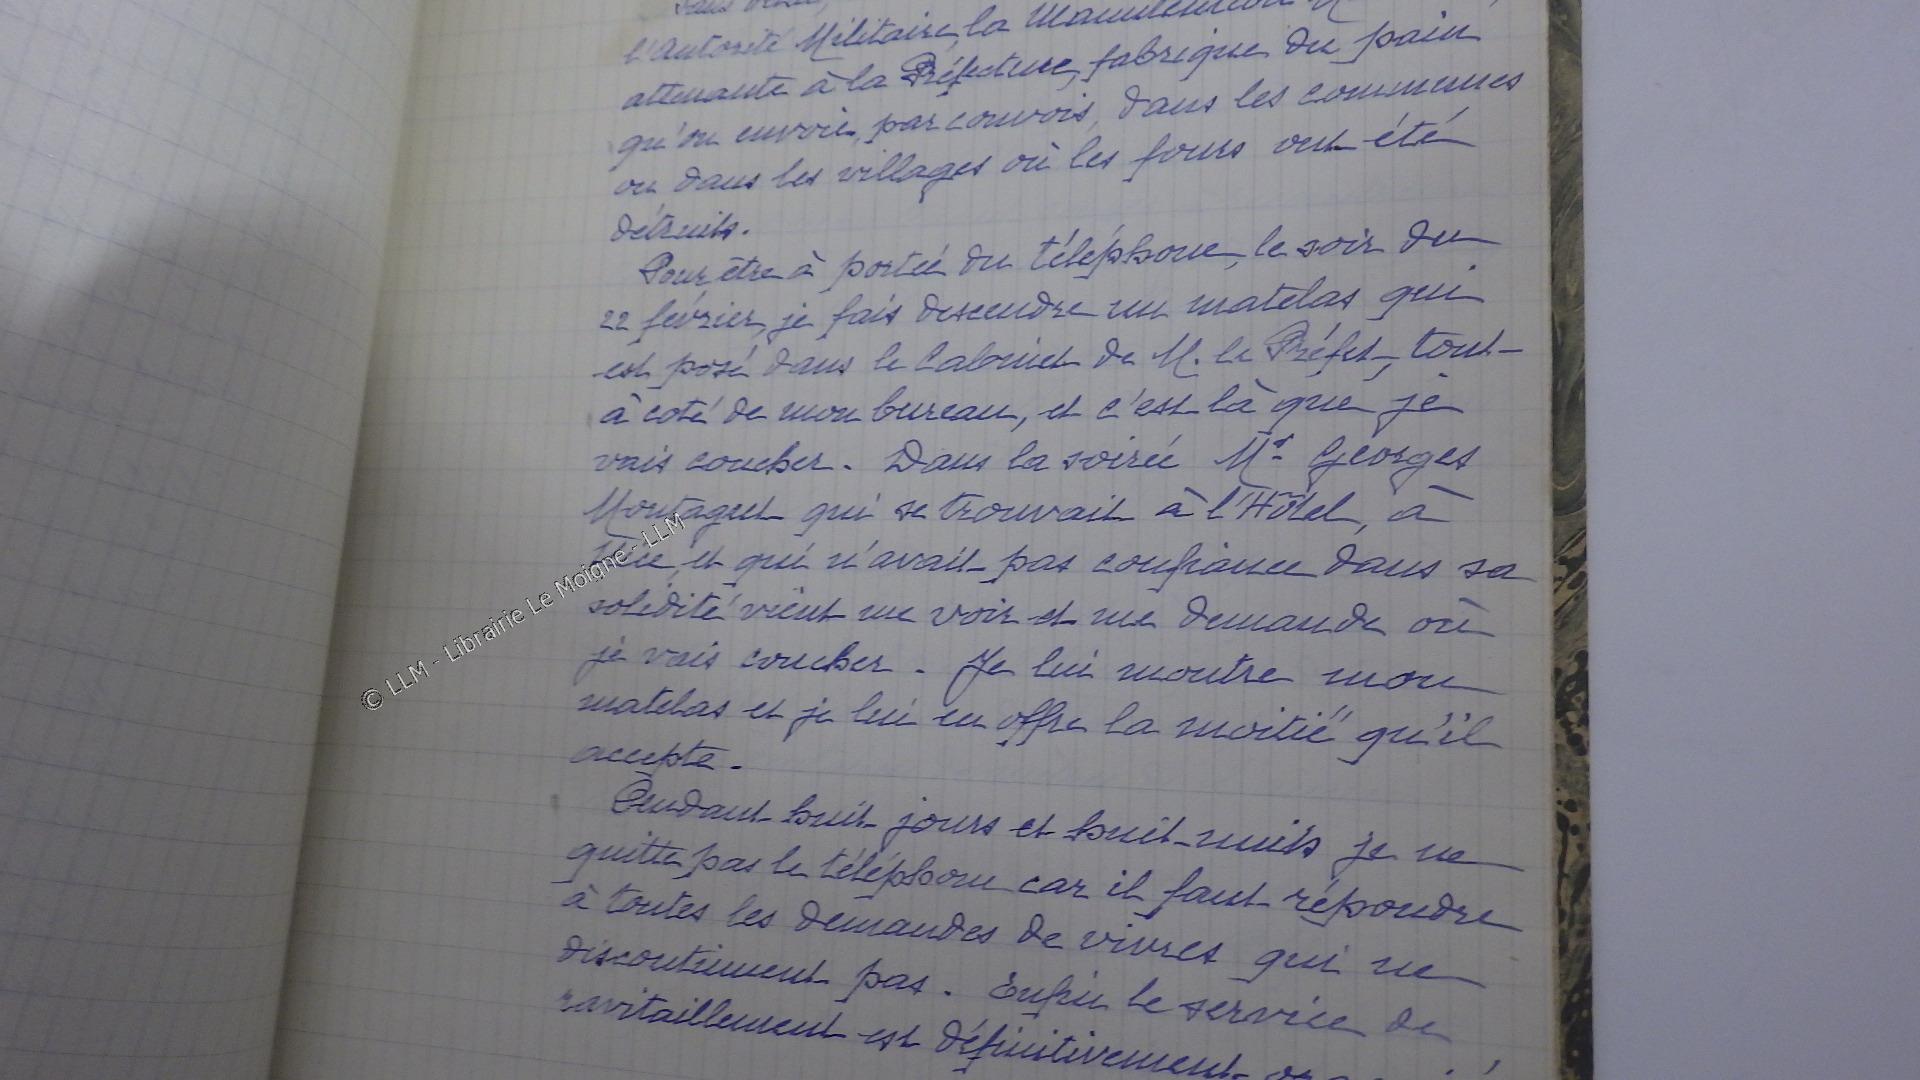 l'Autorité Militaire, la Manutention
attenante à la Préfecture, fabrique du pain
qu'on envoie, par convois, dans les communes
ou dans les villages où les fours ont été
détruits.
Pour être à portée du téléphone, le soir du
22 février, je fais descendre un matelas qui
est posé dans le Cabinet de M. le Préfet, tout-
à coté de mon bureau, et c'est là que je
vais coucher. Dans la soirée Mr Georges
Montagut qui se trouvait à l'Hôtel, à
et qui n'avait pas confiance dans sa
solidité vient me voir et me demande où
je vais coucher. Je lui montre mon
matelas et je lui en offre la moitié qu'il
accepte.
Pendant huit jours et huit nuits je ne
quitte pas le téléphone car il faut répondre
à toutes les demandes de vivres qui ne
discontinuent pas. Enfin le service de
ravitaillement est définitivement
© LLM - Librairie Le Moigne - LLM